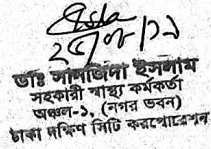 ২৫/০৮/১৯
ডাঃ সানজিদা ইসলাম
সহকারী স্বাস্থ্য কর্মকর্তা
অঞ্চল-১, (নগর ভবন)
ঢাকা দক্ষিণ সিটি করপোরেশন